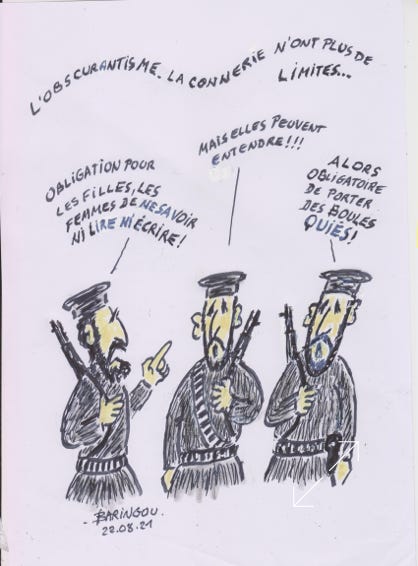 L'OBSCURANTISME. LA CONNERIE N'ONT PLUS DE
LIMITES...
OBLIGATION POUR
LES FILLES, LES
FEMMES DE NE SAVOIR
NI LIRE NI ÉCRIRE!
MAIS ELLES PEUVENT
ENTENDRE!!!
ALORS
OBLIGATOIRE
DE PORTER
DES BOULES
QUIÉS!
-BARINGOU.
22.08.21